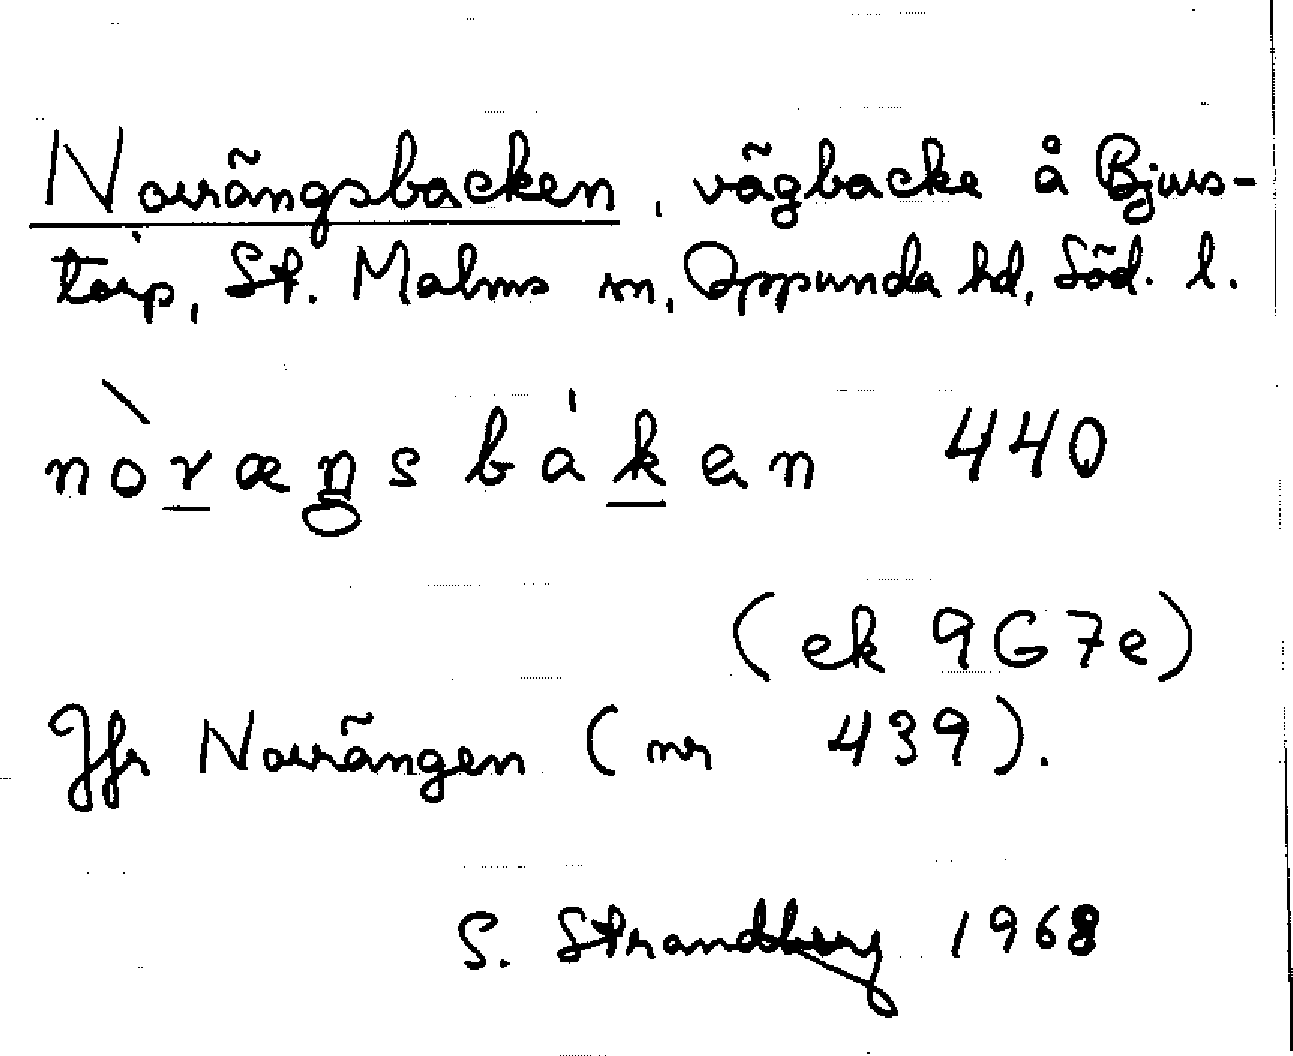 Norrängsbacken, vägbacke å Bjurs-
torp, St. Malms sn, Oppunda hd, Söd. l.
nòrængsbákan 440
(ek 9G7e)
Jfr Norrängen (nr 439).
S. Strandberg 1968